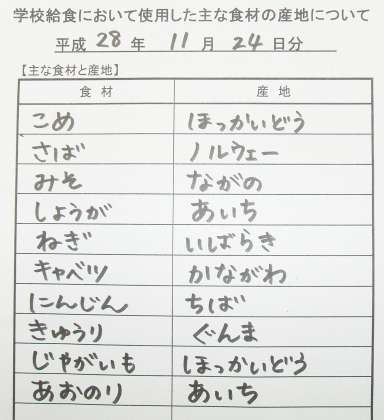 学校給食において使用した主な食材の産地について
平成 28 年 11 月 24 日分
【主な食材と産地】
食材 産地
こめ ほっかいどう
さば ノルウェー
みそ ながの
しょうが あいち
ねぎ いばらき
キャベツ かながわ
にんじん ちば
きゅうり ぐんま
じゃがいも ほっかいどう
あおのり あいち